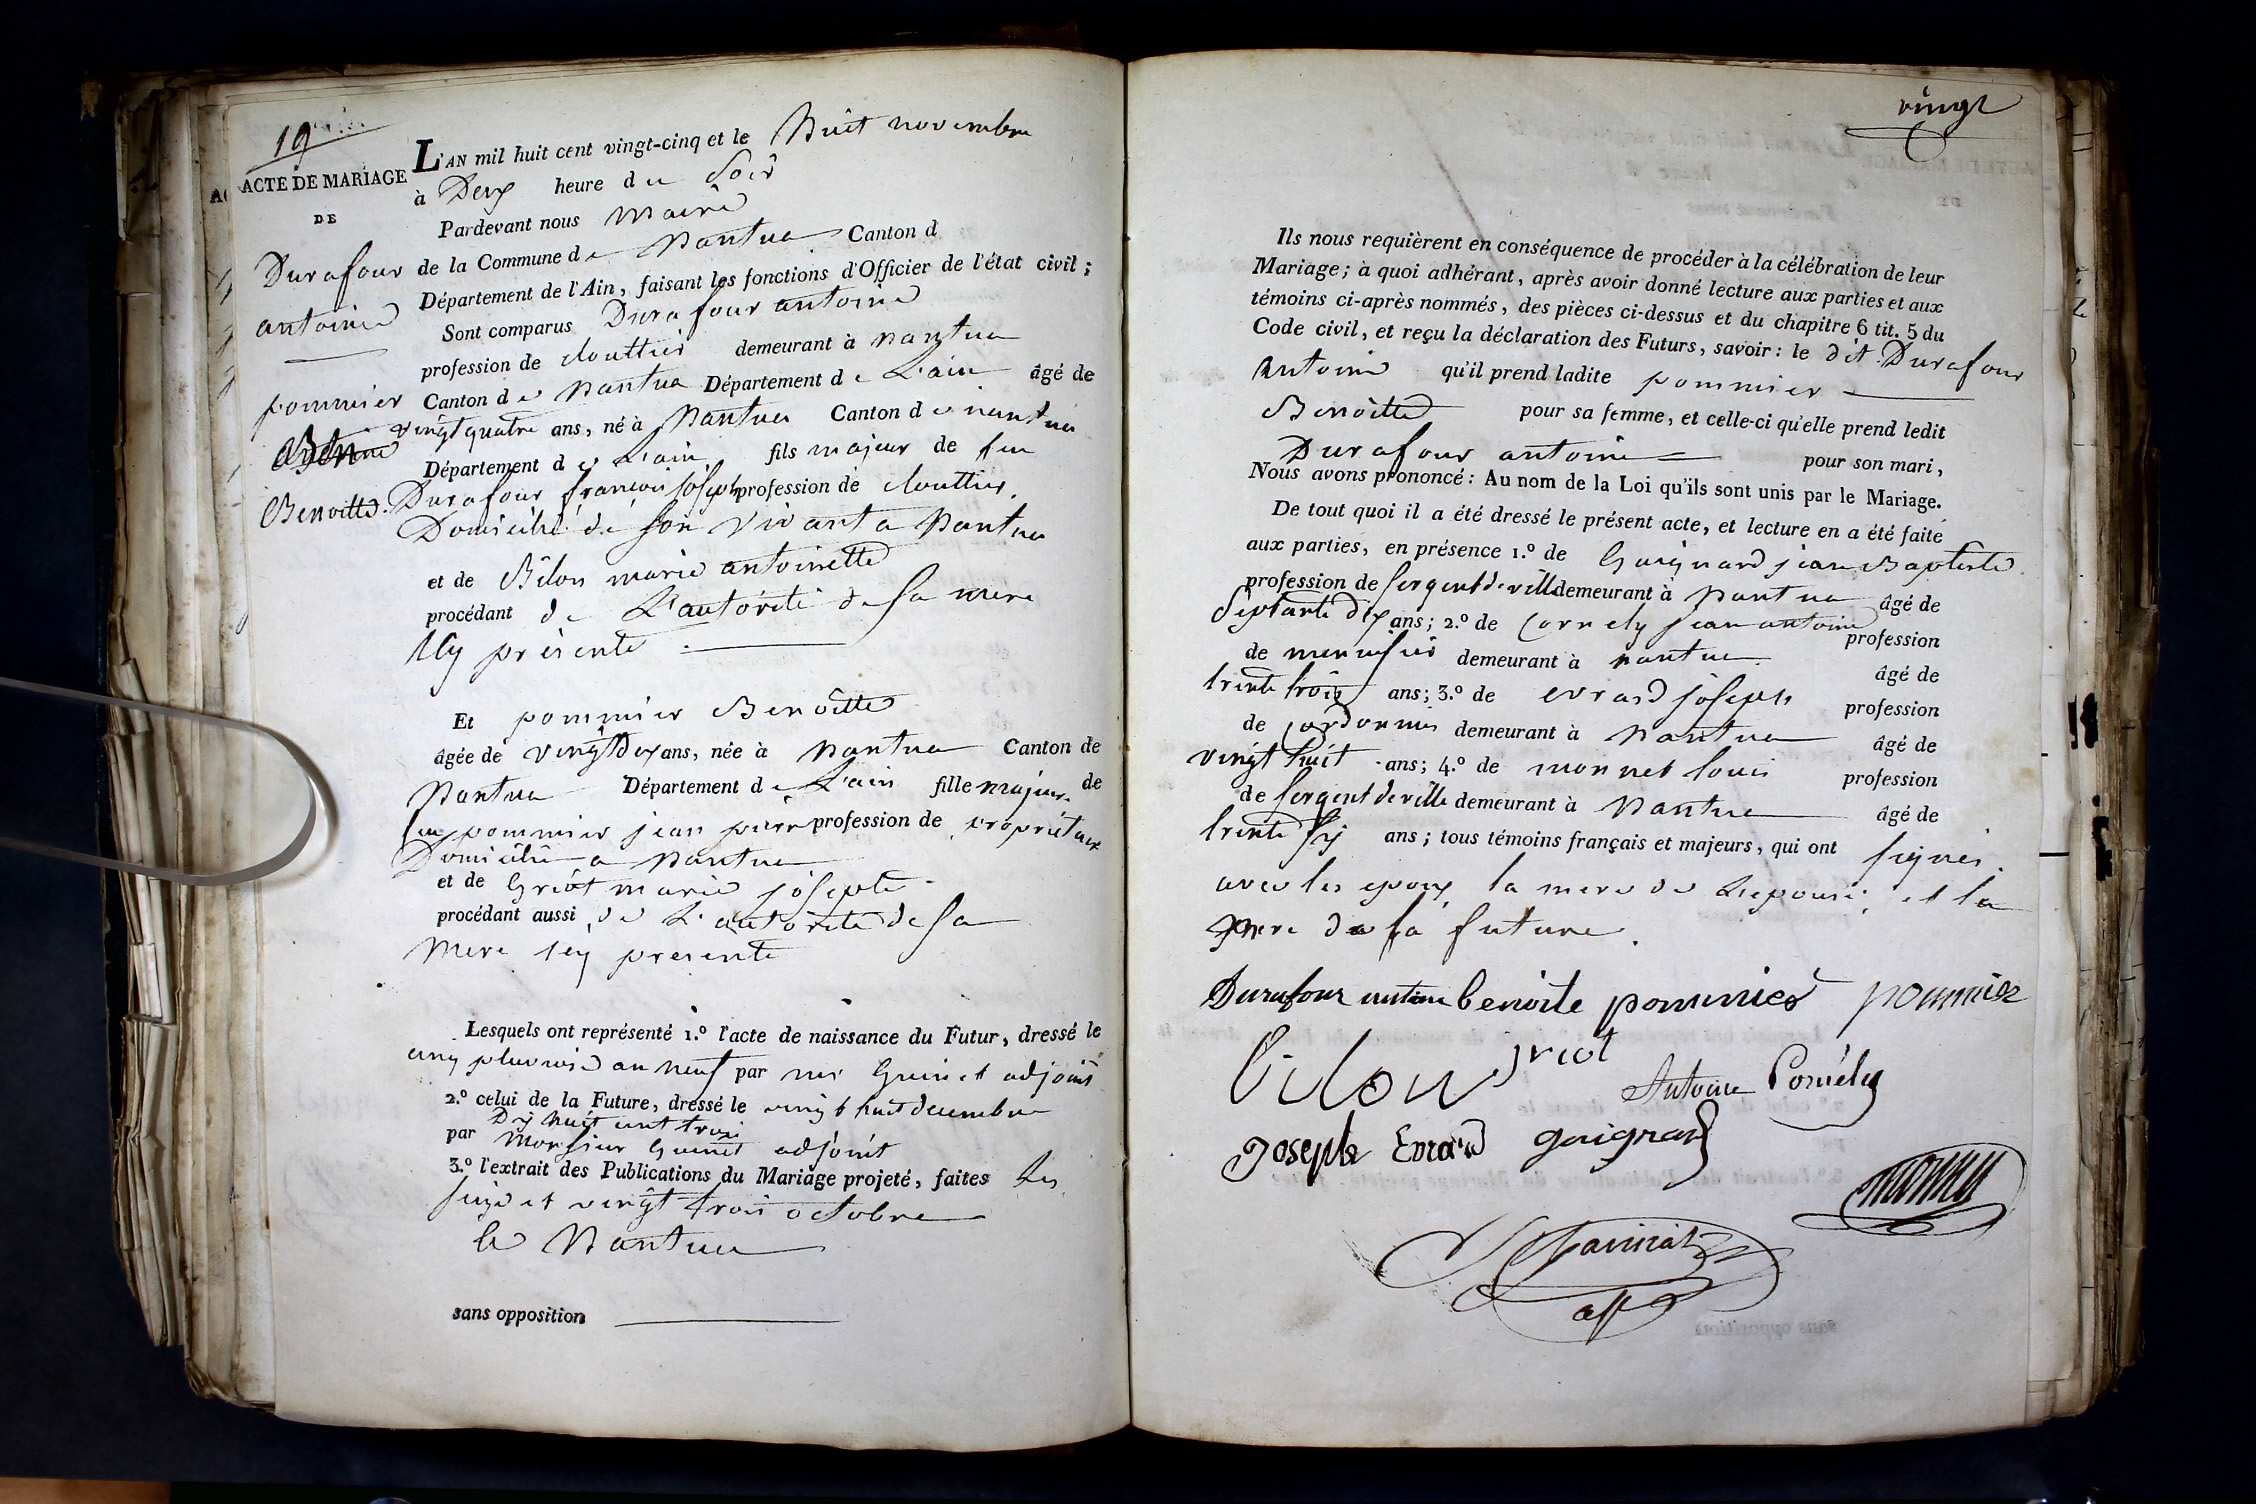 19
ACTE DE MARIAGE
DE
Durafour
antoine
pommier
Benoitte.
L'AN mil huit cent vingt-cinq et le huit novembre
à Deux heure du Soir
Pardevant nous Maire
de la Commune de Nantua Canton d
Département de l'Ain, faisant les fonctions d'Officier de l'état civil;
Sont comparus Durafour antoine
profession de clouttier demeurant à nantua
Canton de Nantua Département de L'ain âgé de
vingt quatre ans, né à Nantua Canton de nantua
Département de L'ain fils majeur de feu
Durafour françois joseph profession de clouttier.
Domicilié de son vivant a Nantua
et de Bilon marie antoinette
procédant de L'autorité de sa mere
icy présente
Et pommier Benoitte
âgée de vingt deux ans, née à Nantua Canton de
Nantua Département de L'ain fille majeure de
feu pommier jean pierre profession de propriétaire
Domicilié a Nantua
et de Griot marie josepte
procédant aussi de L'autorité de sa
mere icy presente
Lesquels ont représenté 1.º l'acte de naissance du Futur, dressé le
cinq pluviose an neuf par mr Guinet adjoint
2.º celui de la Future, dressé le vingt huit decembre
Dix huit cent trois
par Monsieur Guinet adjoint
3.º l'extrait des Publications du Mariage projeté, faites les
seize et vingt trois octobre
a Nantua
sans opposition
vingt
Ils nous requièrent en conséquence de procéder à la célébration de leur
Mariage; à quoi adhérant, après avoir donné lecture aux parties et aux
témoins ci-après nommés, des pièces ci-dessus et du chapitre 6 tit. 5 du
Code civil, et reçu la déclaration des Futurs, savoir: le dit Durafour
Antoine qu'il prend ladite pommier
Benoitte pour sa femme, et celle-ci qu'elle prend ledit
Durafour antoine pour son mari,
Nous avons prononcé: Au nom de la Loi qu'ils sont unis par le Mariage.
De tout quoi il a été dressé le présent acte, et lecture en a été faite
aux parties, en présence 1.º de Guignard jean Baptiste
profession de sergent de ville demeurant à Nantua âgé de
septante dix ans; 2.º de Cornely jean antoine profession
de menuisier demeurant à nantua âgé de
trente trois ans; 3.º de evrard joseph profession
de cordonnier demeurant à Nantua âgé de
vingt huit ans; 4.º de monnet louis profession
de sergent de ville demeurant à Nantua âgé de
trente six ans; tous témoins français et majeurs, qui ont signés
avec les epoux, la mere de L'epouse, et la
mere de la future.
Durafour antoine benoite pommier pommier
bilon griot
Antoine Cornély
Joseph Evrard guignard
monnet